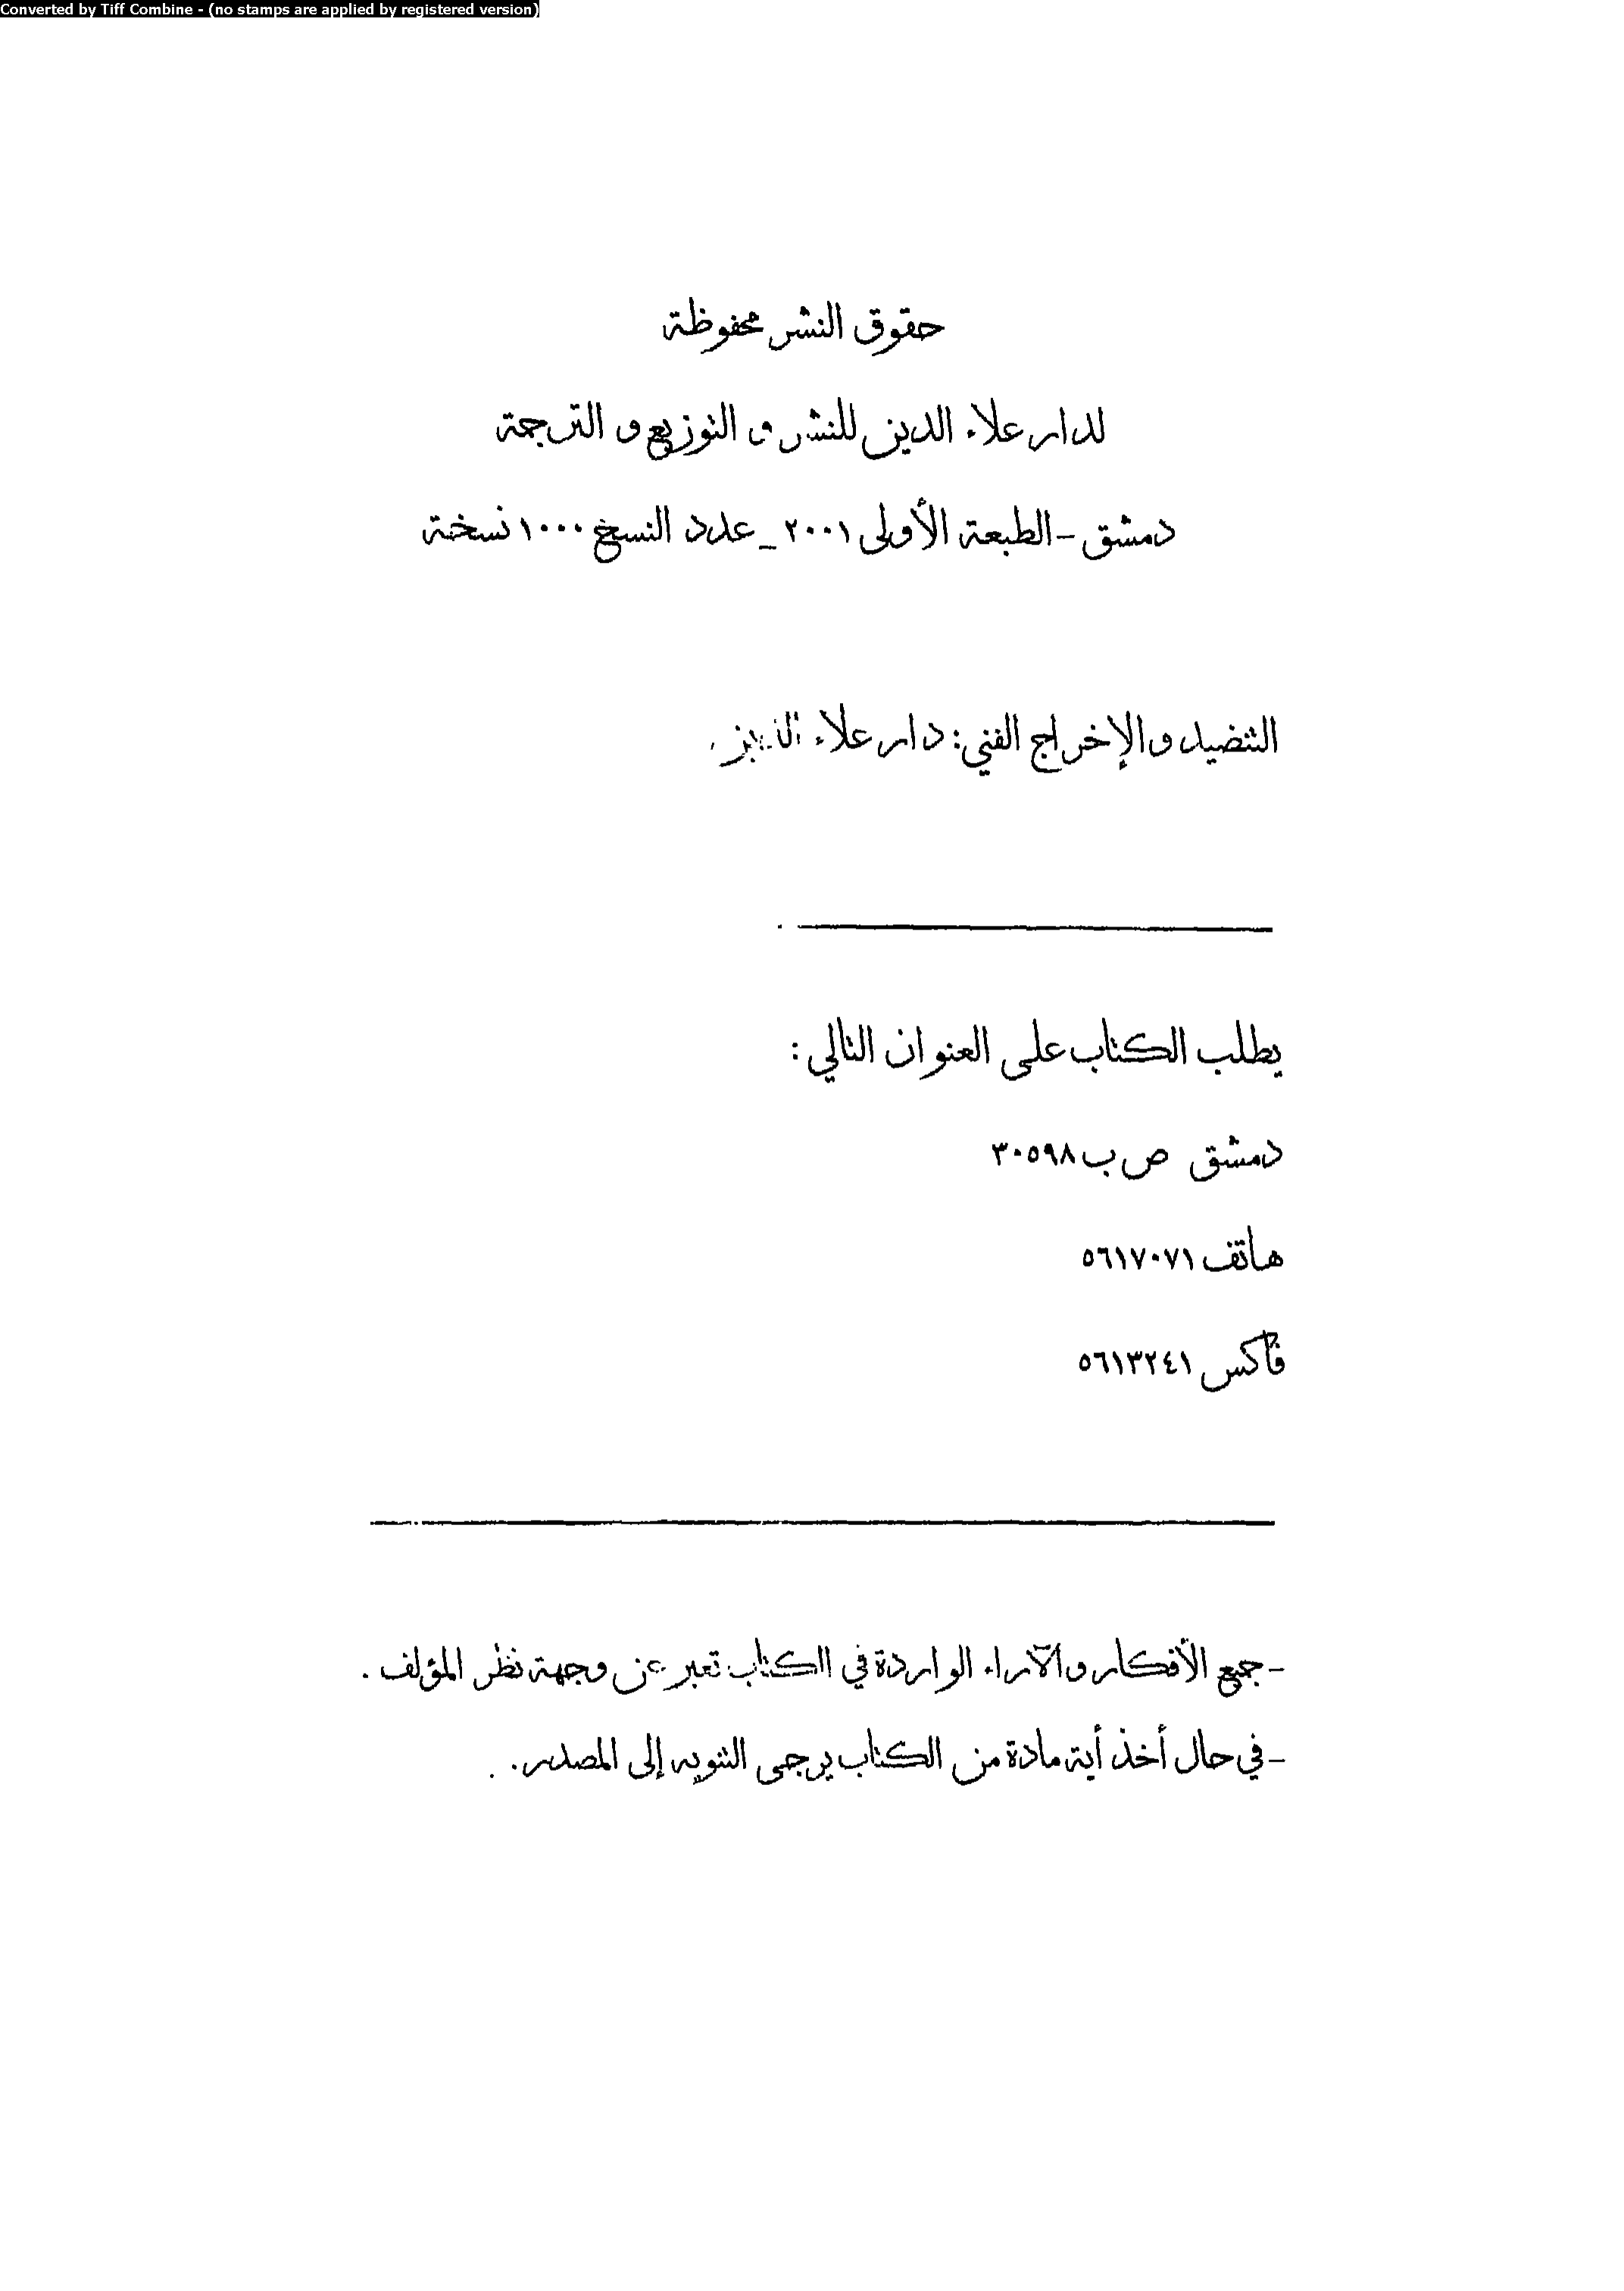 Converted by Tiff Combine - (no stamps are applied by registered version)
حقوق النشر محفوظة
لدار علاء الدين للنشر و التوزيع و الترجمة
دمشق - الطبعة الأولى ٢٠٠١ _ عدد النسخ ١٠٠٠ نسخة
التنضيد والإخراج الفني: دار علاء الدين
يطلب الكتاب على العنوان التالي :
دمشق ص ب ٣٠٥٩٨
هاتف ٥٦١٧٠٧١
فاكس ٥٦١٣٢٤١
- جميع الأفكار والآراء الواردة في الكتاب تعبر عن وجهة نظر المؤلف .
- في حال أخذ أية مادة من الكتاب يرجى التنويه إلى المصدر.